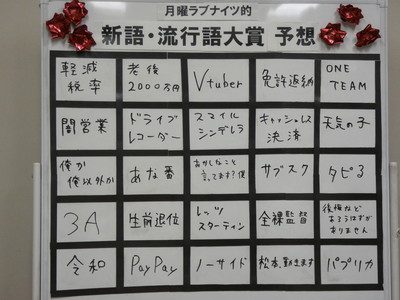 月曜ラブナイツ的
新語・流行語大賞 予想
軽減
税率
老後
2000万円
Vtuber
免許返納
ONE
TEAM
闇営業
ドライブ
レコーダー
スマイル
シンデレラ
キャッシュレス
決済
天気の子
俺か
俺以外か
あな番
おかしなこと
言ってます?僕
サブスク
タピる
3A
生前退位
レッツ
スターティン
全裸監督
後悔など
あろうはずが
ありません
令和
PayPay
ノーサイド
松本、動きます
パプリカ